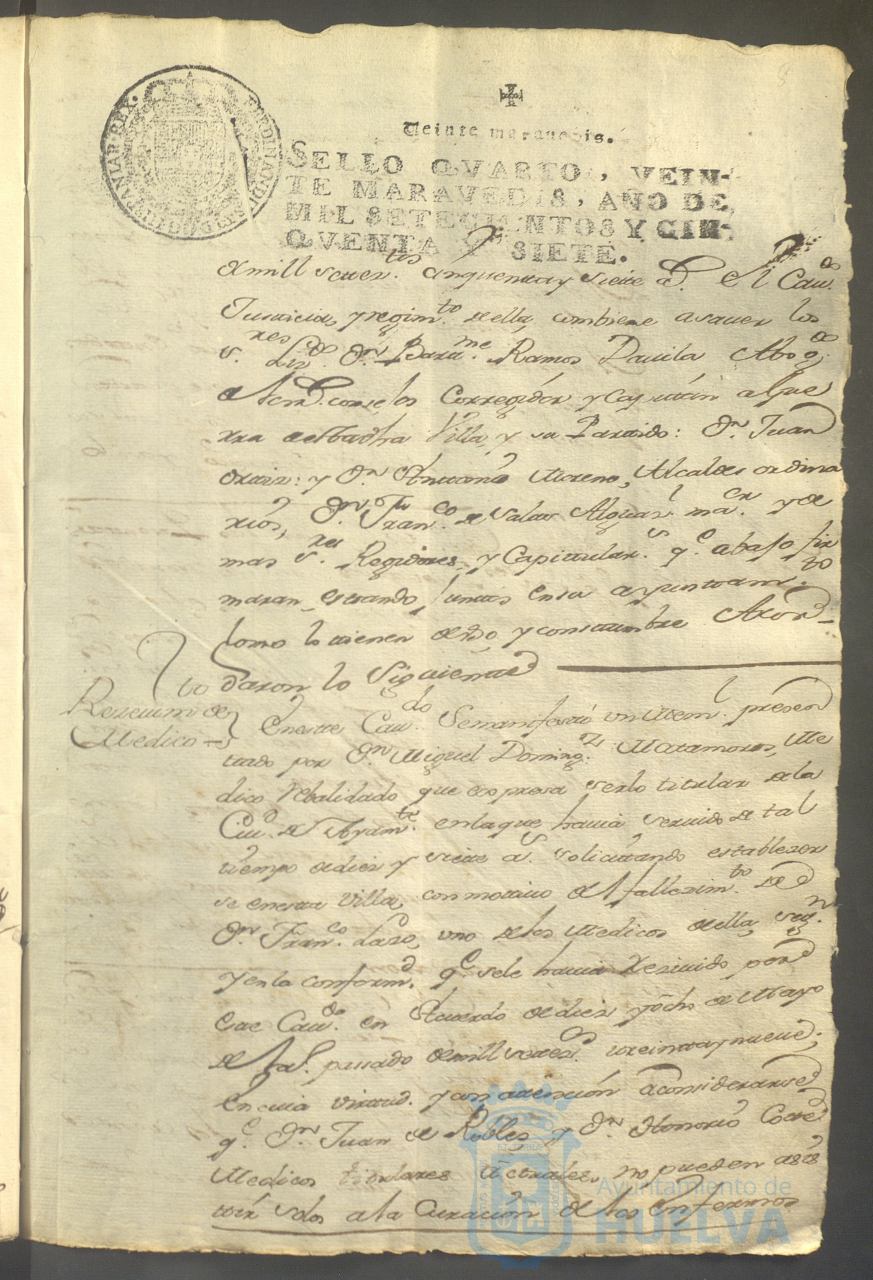 HISPANIAR·REX· FERDINANDUS·VI·D·G·
Veinte maravedis.
SELLO QVARTO, VEIN-
TE MARAVEDIS, AÑO DE
MIL SETECIENTOS Y CIN-
QVENTA Y SIETE.
de mill setez.tos cinquenta y siete a.s El Cav.do
Justicia, y regim.to de ella, combiene a saver los
s.res Liz.do D.n Bar.me Ramos Davila Abog.do
de los R.s consejos Corregidor y Capitan a Gue
rra de esta dha Villa, y su Partido: D.n Juan
Ortiz: y D.n Antonio Moreno, Alcaldes ordina
rios, D.n Fran.co de Salas Alguas.l ma.or y de
mas s.res Regidores, y Capitular.s q.e abajo fir
maran, estando juntos en su ayuntam.to
como lo tienen de uso y constumbre Acor-
daron lo Siguiente
Receuim.to de
Medico
En este Cav.do Se manifestó un Mem.l presen
tado por D.n Miguel Doming.z Matamoros, Me
dico Rebalidado, que expresa serlo titular de la
Ciu.d de Ayam.te en la que havia servido de tal
tiempo de diez y siete a.s solicitando establezer
se en esta villa, con motivo del fallezim.to de
D.n Fran.co Lazo, uno de los Medicos de ella, seg.n
y en la conform.d q.e se le havia rezivido por
este Cav.do en Acuerdo de diez y ocho de Mayo
del pasado de mill setez.s treinta y nueve;
En cuia virtud. y con atención a considerarse
q.e D.n Juan de Robles, y D.n Honorio
Medicos titulares actuales, no pueden asis
tir solos a la Curación de los enfermos
Ayuntamiento de
HUELVA